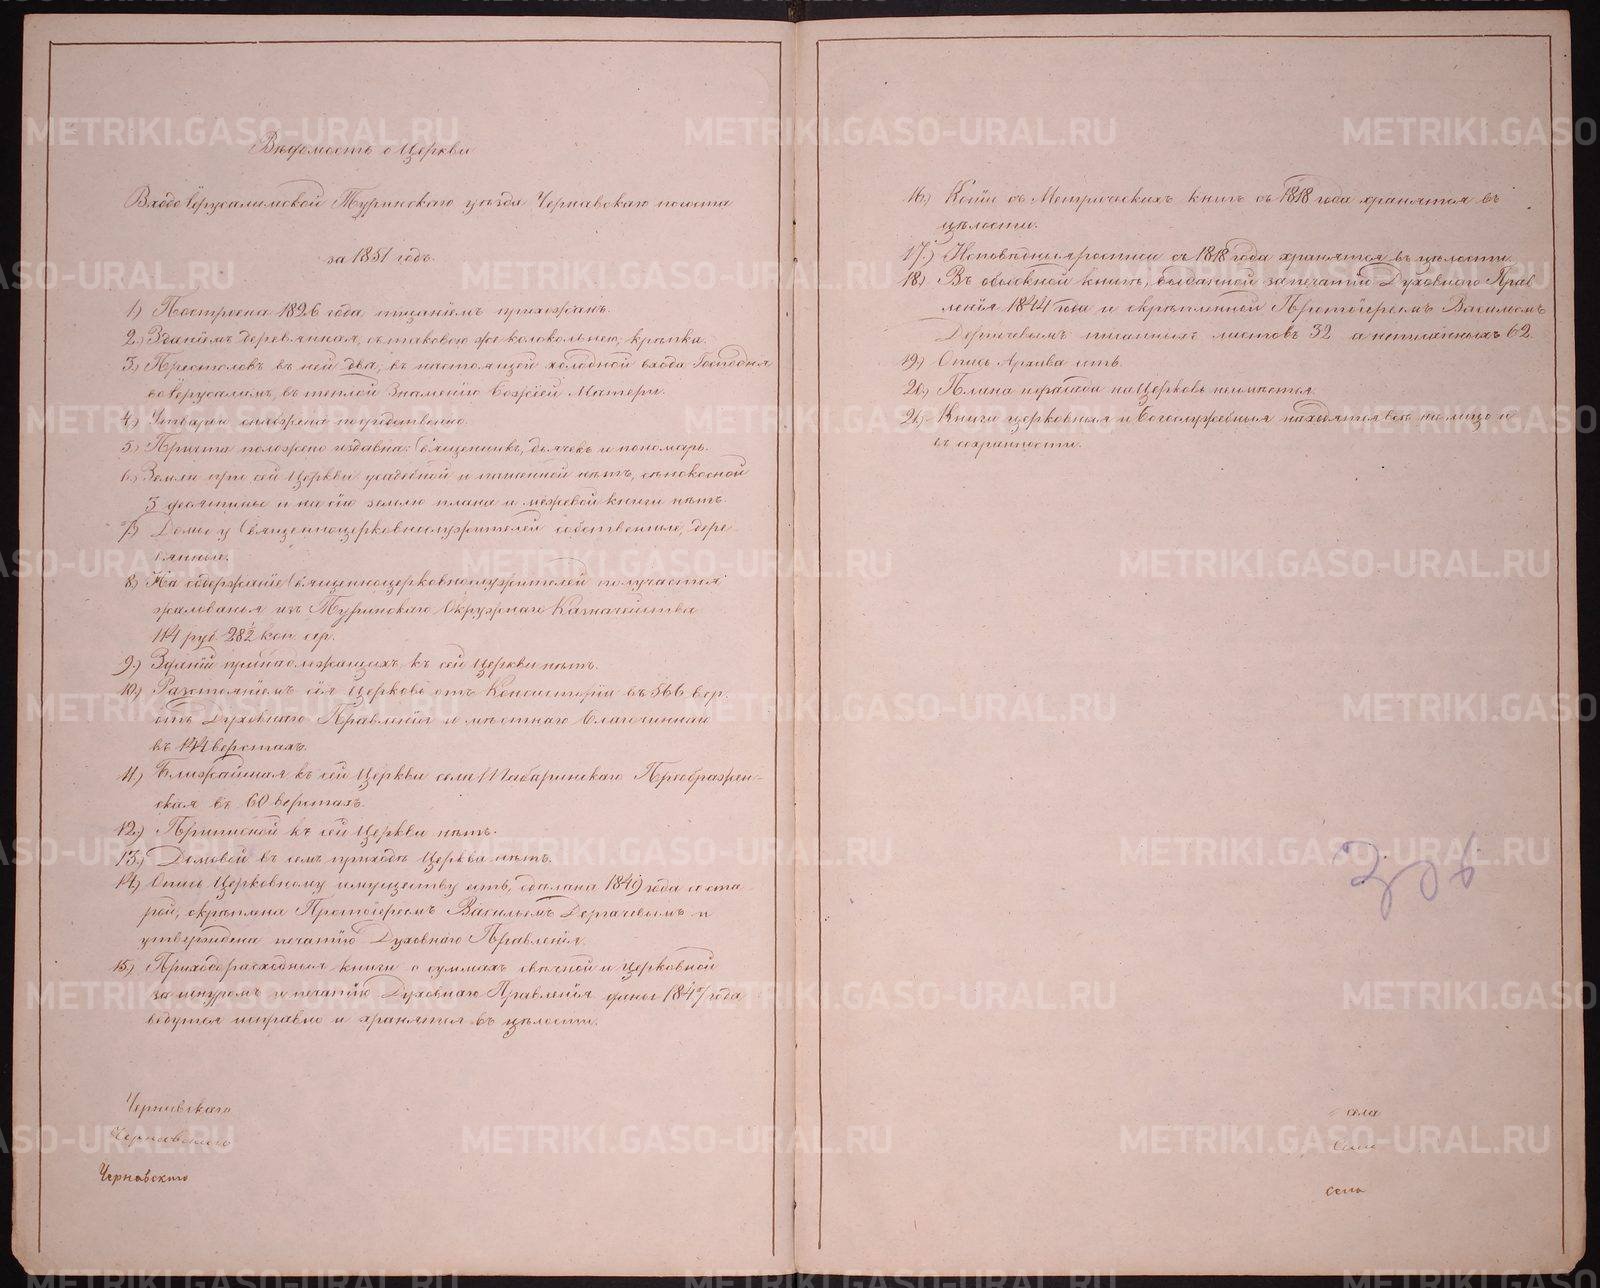 Вѣдомость о Церкви
Входоіерусалимской Туринскаго уѣзда Чернавскаго погоста
за 1851 годъ.
1) Построена 1826 года тщаніемъ прихожанъ.
2) Зданіемъ деревянная, съ таковою же колокольнею, крѣпка.
3) Престоловъ въ ней два, въ настоящей холодной входа Господня
во Іерусалимъ, въ теплой Знаменію Божіей Матери.
4) Утварью снабжена посредственно.
5) Причта положено издавна: Священникъ, дьячекъ и пономарь.
6) Земли при сей Церкви усадебной и пашенной нѣтъ, сѣнокосной
3 десятины и на сію землю плана и межевой книги нѣтъ.
7) Домы у Священноцерковнослужителей собственные, дере-
вянные.
8) На содержаніе Священноцерковнослужителей получается
жалованья изъ Туринскаго Окружнаго Казначейства
114 руб. 28½ коп. сер.
9) Зданій принадлежащихъ къ сей Церкви нѣтъ.
10) Разстояніемъ сія Церковь отъ Консисторіи въ 566 вер.
отъ Духовнаго Правленія и мѣстнаго Благочиннаго
въ 144 верстахъ.
11) Ближайшая къ сей Церкви села Табаринскаго Преображен-
ская въ 60 верстахъ.
12) Приписной къ сей Церкви нѣтъ.
13) Домовой въ семъ приходѣ Церкви нѣтъ.
14) Опись Церковному имуществу есть, сдѣлана 1840 года со ста-
рой, скрѣплена Протоіереемъ Васильемъ Дергачевымъ и
утверждена печатію Духовнаго Правленія.
15) Приходорасходныя книги о суммахъ свѣчной и церковной
за шнуромъ и печатію Духовнаго Правленія даны 1847 года
ведутся исправно и хранятся въ цѣлости.
Чернавскаго
Чернавскаго
Чернавскаго
16) Копіи съ Метрическихъ книгъ съ 1818 года хранятся въ
цѣлости.
17) Исповѣдныя росписи съ 1818 года хранятся въ цѣлости
18) Въ обыскной книгѣ, выданной за печатію Духовнаго Прав-
ленія 1844 года и скрѣпленной Протоіереемъ Васильемъ
Дергачевымъ писанныхъ листовъ 32 а неписанныхъ 62.
19) Опись Архива есть.
20) Плана и фасада на Церковь неимѣется.
21) Книги церковныя и богослужебныя находятся всѣ на лицо и
въ сохранности.
села
села
села
METRIKI.GASO-URAL.RU